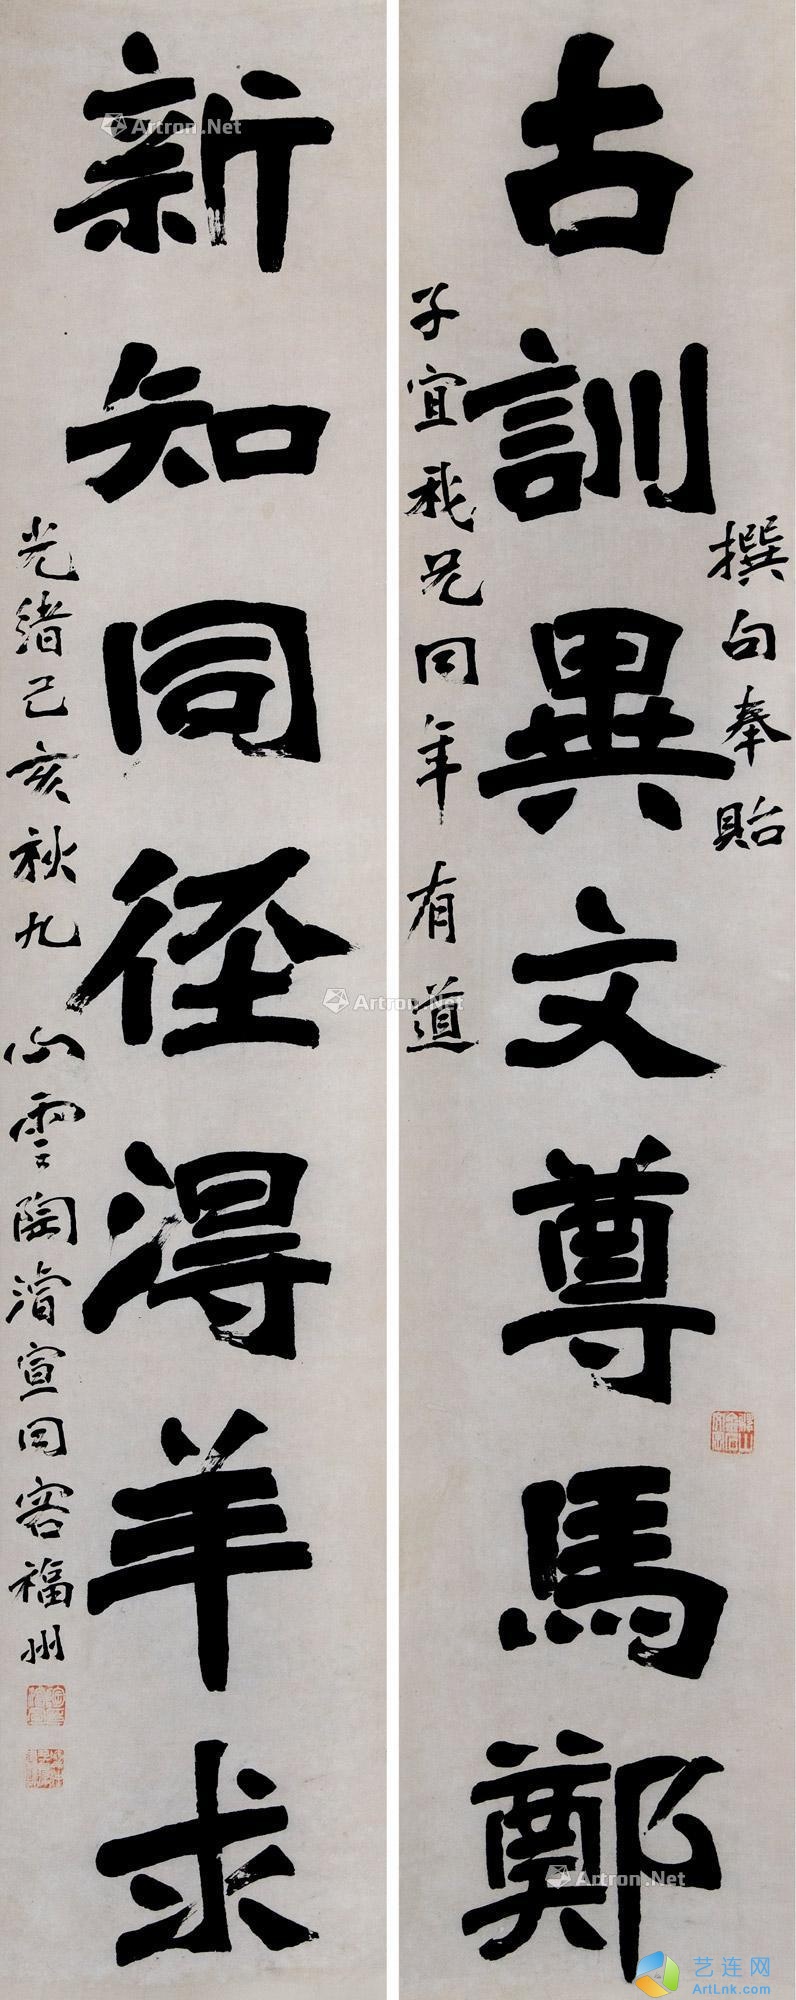 撰句奉貽
古訓異文尊馬鄭
子宜我兄同年有道
新知同徑得羊求
光緒己亥秋九 心雲陶濬宣同客福州
Artron.Net
Artron.Net
Artron.Net
艺连网
ArtLnk.com